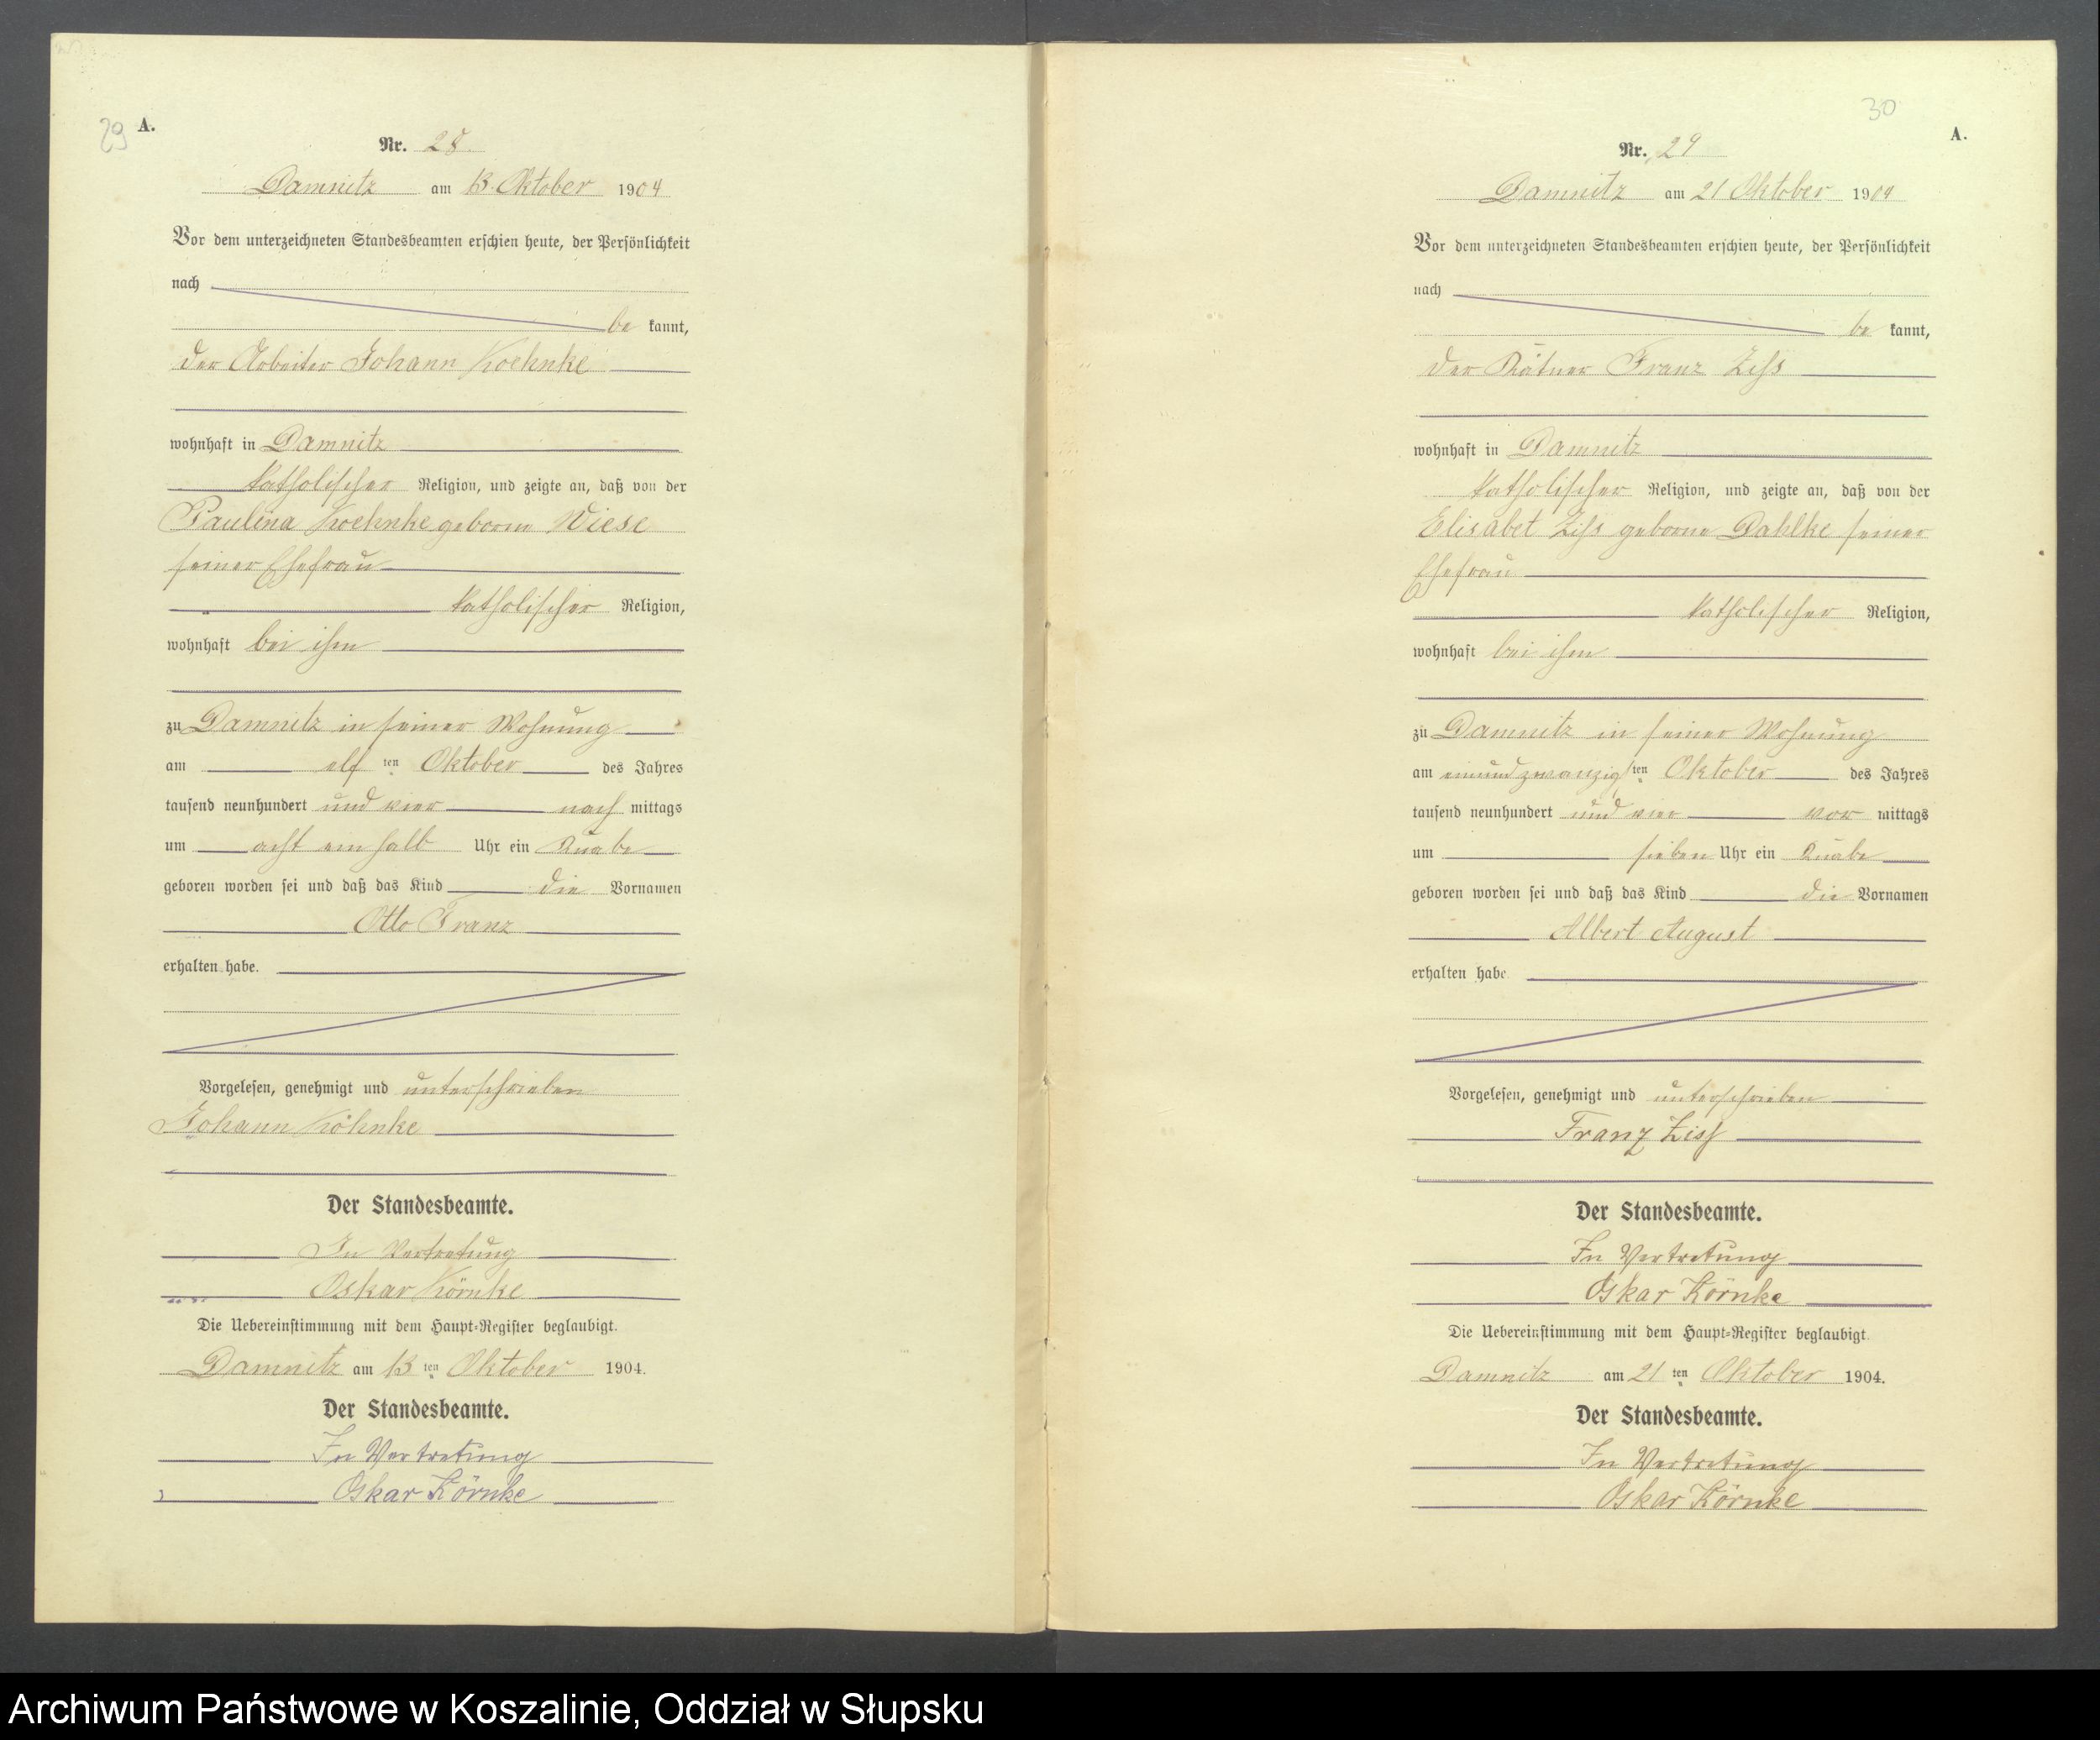 29 A.
Nr. 28.
Damnitz am 13. Oktober 1904
Vor dem unterzeichneten Standesbeamten erschien heute, der Persönlichkeit
nach
be kannt,
der Arbeiter Johann Koehnke
wohnhaft in Damnitz
katholischer Religion, und zeigte an, daß von der
Paulina Koehnke geborne Wiese
seiner Ehefrau
katholischer Religion,
wohnhaft bei ihm
zu Damnitz in seiner Wohnung
am elf ten Oktober des Jahres
tausend neunhundert und vier nach mittags
um acht ein halb Uhr ein Knabe
geboren worden sei und daß das Kind die Vornamen
Otto Franz
erhalten habe.
Vorgelesen, genehmigt und unterschrieben
Johann Köhnke
Der Standesbeamte.
In Vertretung
Oskar Körnke
Die Uebereinstimmung mit dem Haupt-Register beglaubigt.
Damnitz am 13 ten Oktober 1904.
Der Standesbeamte.
In Vertretung
Oskar Körnke
30
A.
Nr. 29
Damnitz am 21 Oktober 1904
Vor dem unterzeichneten Standesbeamten erschien heute, der Persönlichkeit
nach
be kannt,
der Kätner Franz Ziss
wohnhaft in Damnitz
katholischer Religion, und zeigte an, daß von der
Elisabet Ziss geborne Dahlke seiner
Ehefrau
katholischer Religion,
wohnhaft bei ihm
zu Damnitz in seiner Wohnung
am einundzwanzigs ten Oktober des Jahres
tausend neunhundert und vier vor mittags
um sieben Uhr ein Knabe
geboren worden sei und daß das Kind die Vornamen
Albert August
erhalten habe
Vorgelesen, genehmigt und unterschrieben
Franz Ziss
Der Standesbeamte.
In Vertretung
Oskar Körnke
Die Uebereinstimmung mit dem Haupt-Register beglaubigt.
Damnitz am 21 ten Oktober 1904.
Der Standesbeamte.
In Vertretung
Oskar Körnke
Archiwum Państwowe w Koszalinie, Oddział w Słupsku